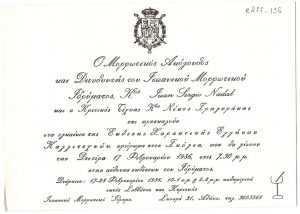 e277-196
Ο Μορφωτικός Ακόλουθος
και Διευθυντής του Ισπανικού Μορφωτικού
Ιδρύματος, Κος Juan Sergio Nadal
και ο Κριτικός Τέχνης Κος Νίκος Γρηγοράκης
σας προσκαλούν
στα εγκαίνια της Έκθεσης Χαρακτικής Ελλήνων
Καλλιτεχνών, αφιέρωμα στον Γκόγια, που θα γίνουν
την Δευτέρα 17 Φεβρουαρίου 1986, στις 7.30 μ.μ.
στην αίθουσα εκθέσεων του Ιδρύματος.
Διάρκεια: 17-28 Φεβρουαρίου 1986. 10-1 π.μ. 5-8 μ.μ. καθημερινά
εκτός Σαββάτου και Κυριακής
Ισπανικό Μορφωτικό Ίδρυμα. Σκουφά 31. Αθήνα. τηλ. 3603568